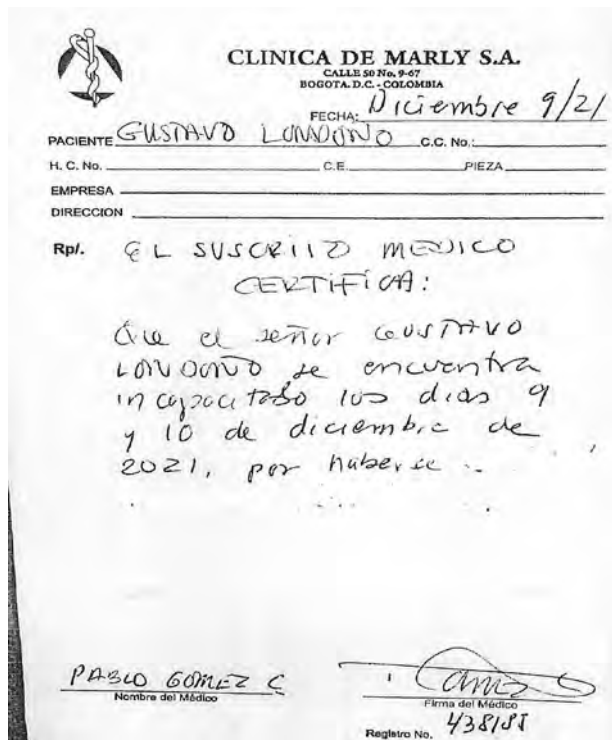 CLINICA DE MARLY S.A.
CALLE 50 No. 9-67
BOGOTA. D.C. - COLOMBIA
FECHA: Diciembre 9/21
PACIENTE GUSTAVO LONDOÑO C.C. No.:
H. C. No. C.E. PIEZA
EMPRESA
DIRECCION
Rp/. EL SUSCRITO MEDICO
CERTIFICA:
Que el señor GUSTAVO
LONDOÑO se encuentra
incapacitado los dias 9
y 10 de diciembre de
2021, por haberse
PABLO GOMEZ C
Nombre del Médico
Firma del Médico
Registro No.